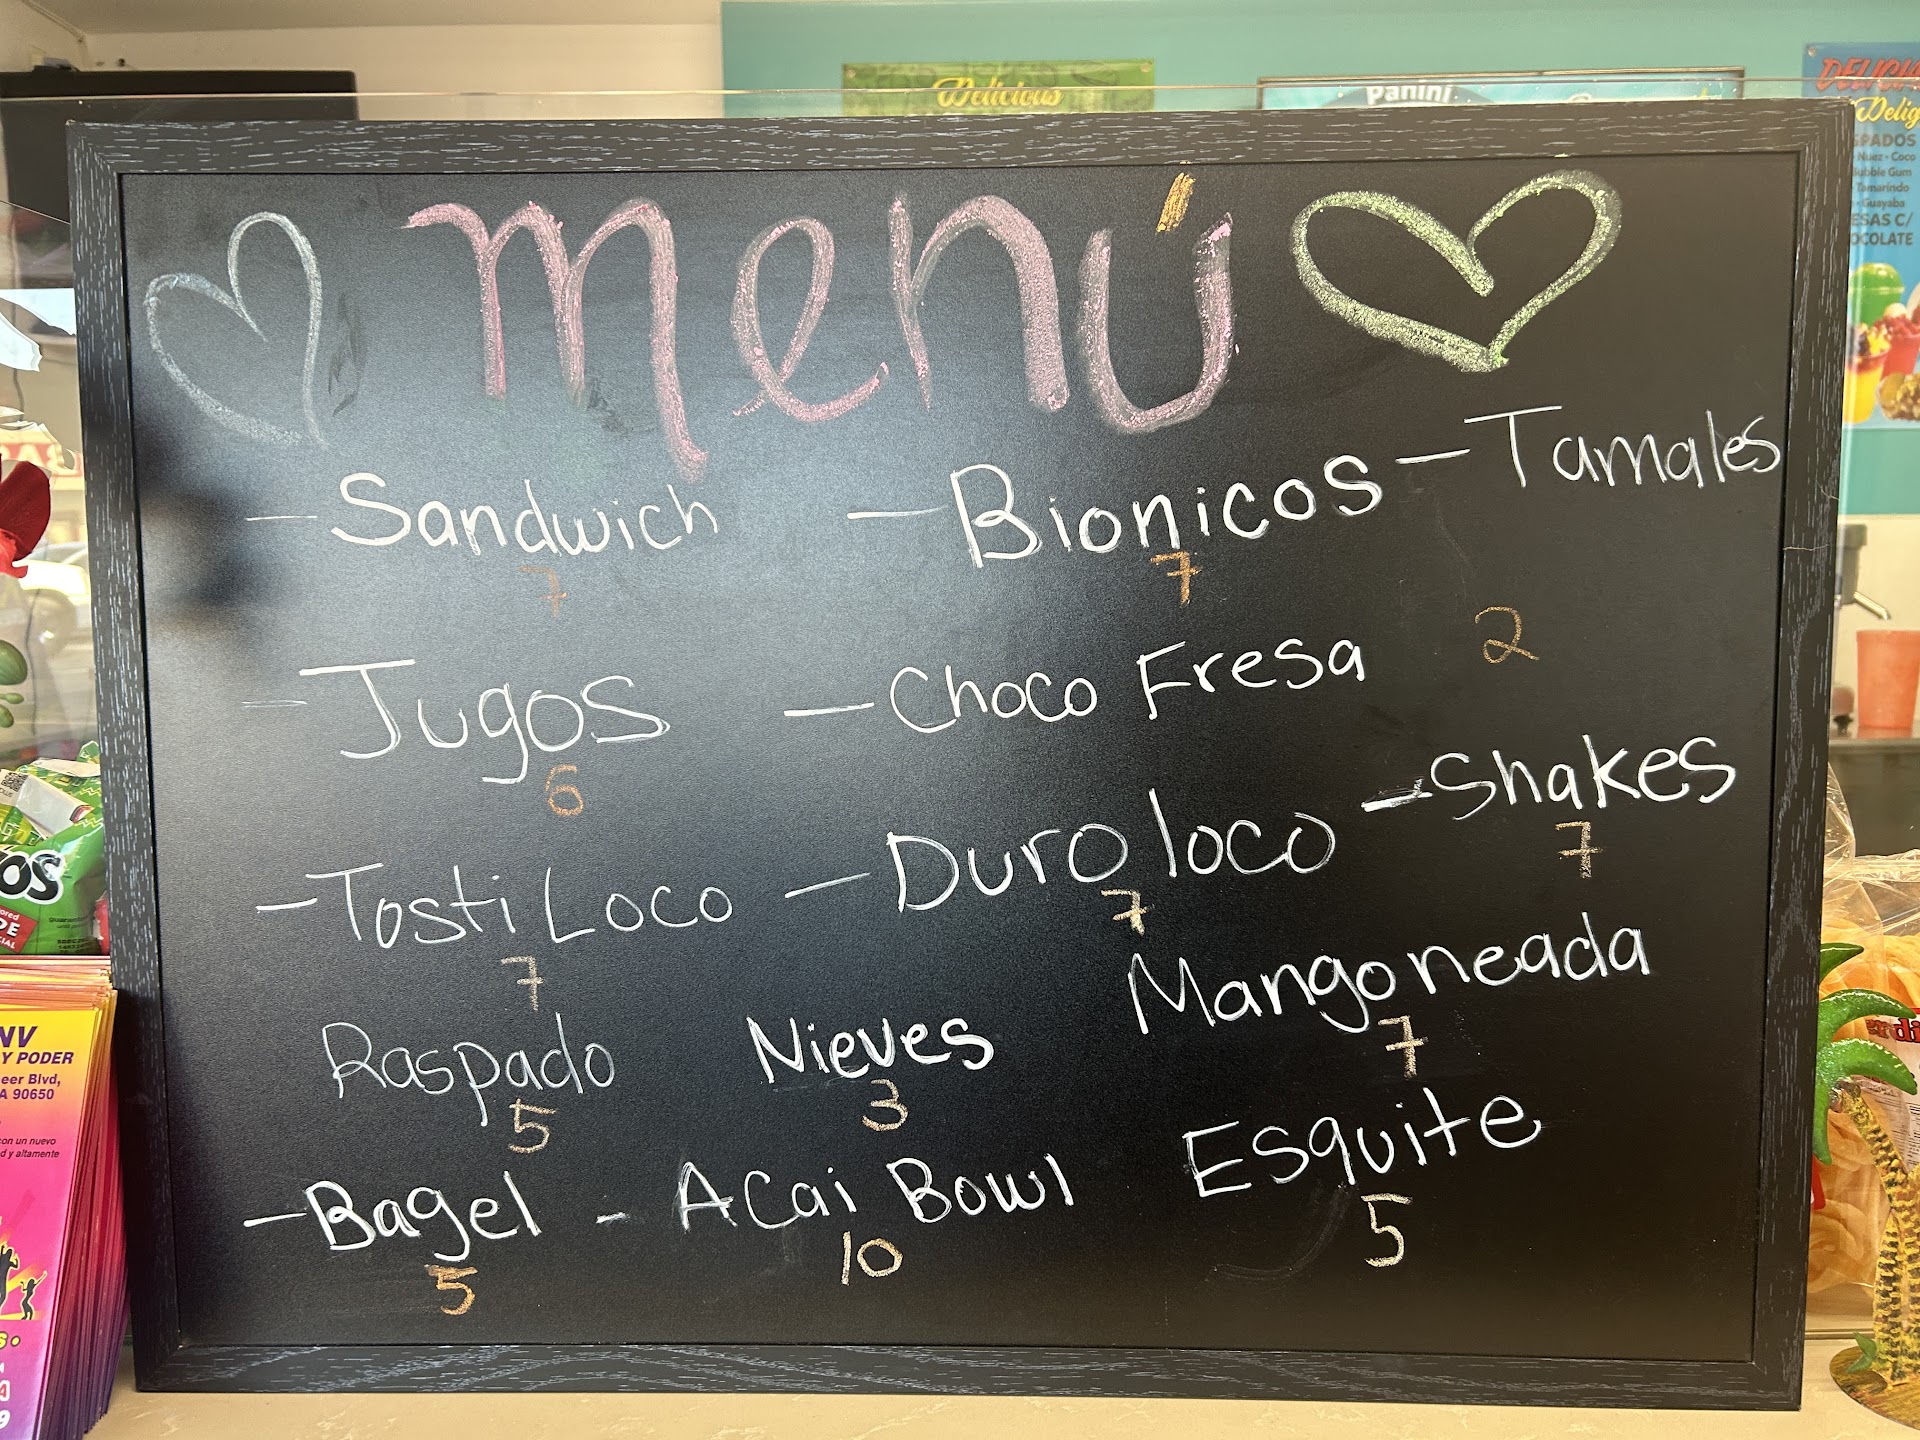 Delicious
Panini
DELICIA
Delig
SPADOS
Nuez • Coco
Bubble Gum
Tamarindo
• Guayaba
ESAS C/
OCOLATE
menú
- Sandwich
7
- Bionicos
7
- Tamales
2
- Jugos
6
- Choco Fresa
- Shakes
7
- Tosti Loco
7
- Duro loco
7
Mangoneada
7
Raspado
5
Nieves
3
Esquite
5
- Bagel
5
- Acai Bowl
10
OS
NV
Y PODER
eer Blvd,
A 90650
con un nuevo
d y altamente